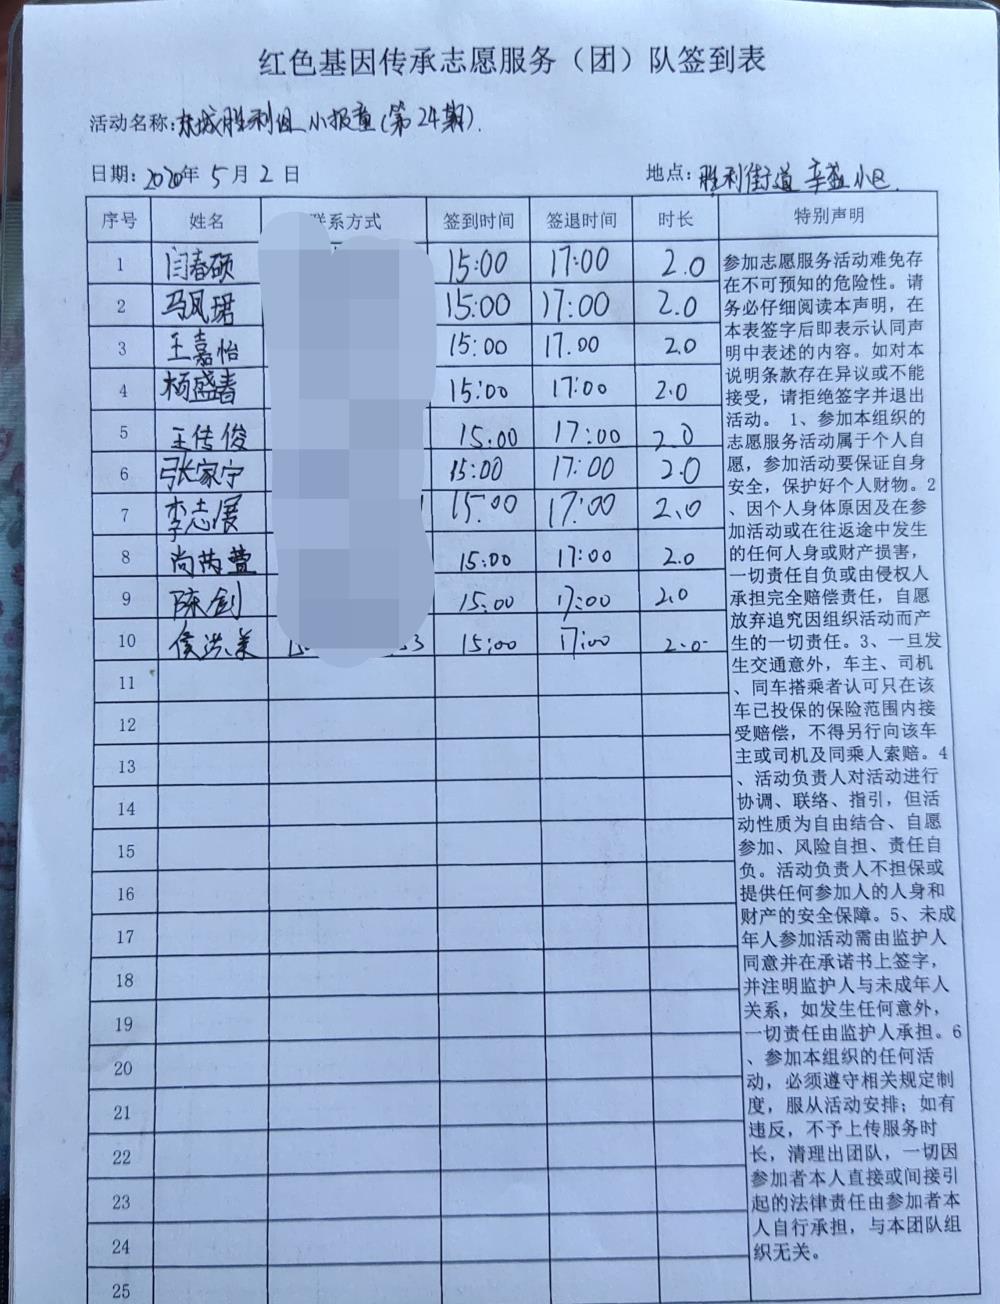 红色基因传承志愿服务（团）队签到表
活动名称:东城胜利组小报童(第24期).
日期: 2020年 5月 2日 地点: 胜利街道 辛益小区.
序号 姓名 联系方式 签到时间 签退时间 时长 特别声明
1 闫春硕 15:00 17:00 2.0
2 马凤珺 15:00 17:00 2.0
3 王嘉怡 15:00 17.00 2.0
4 杨盛春 15:00 17:00 2.0
5 王传俊 15.00 17:00 2.0
6 张家宁 15:00 17:00 2.0
7 李志展 15:00 17:00 2.0
8 尚芮萱 15:00 17:00 2.0
9 陈剑 15:00 17:00 2.0
10 侯洪美 15:00 17:00 2.0
11
12
13
14
15
16
17
18
19
20
21
22
23
24
25
参加志愿服务活动难免存
在不可预知的危险性。请
务必仔细阅读本声明，在
本表签字后即表示认同声
明中表述的内容。如对本
说明条款存在异议或不能
接受，请拒绝签字并退出
活动。 1、参加本组织的
志愿服务活动属于个人自
愿，参加活动要保证自身
安全，保护好个人财物。2
、因个人身体原因及在参
加活动或在往返途中发生
的任何人身或财产损害，
一切责任自负或由侵权人
承担完全赔偿责任，自愿
放弃追究因组织活动而产
生的一切责任。3、一旦发
生交通意外，车主、司机
、同车搭乘者认可只在该
车已投保的保险范围内接
受赔偿，不得另行向该车
主或司机及同乘人索赔。4
、活动负责人对活动进行
协调、联络、指引，但活
动性质为自由结合、自愿
参加、风险自担、责任自
负。活动负责人不担保或
提供任何参加人的人身和
财产的安全保障。5、未成
年人参加活动需由监护人
同意并在承诺书上签字，
并注明监护人与未成年人
关系，如发生任何意外，
一切责任由监护人承担。6
、参加本组织的任何活
动，必须遵守相关规定制
度，服从活动安排；如有
违反，不予上传服务时
长，清理出团队，一切因
参加者本人直接或间接引
起的法律责任由参加者本
人自行承担，与本团队组
织无关。